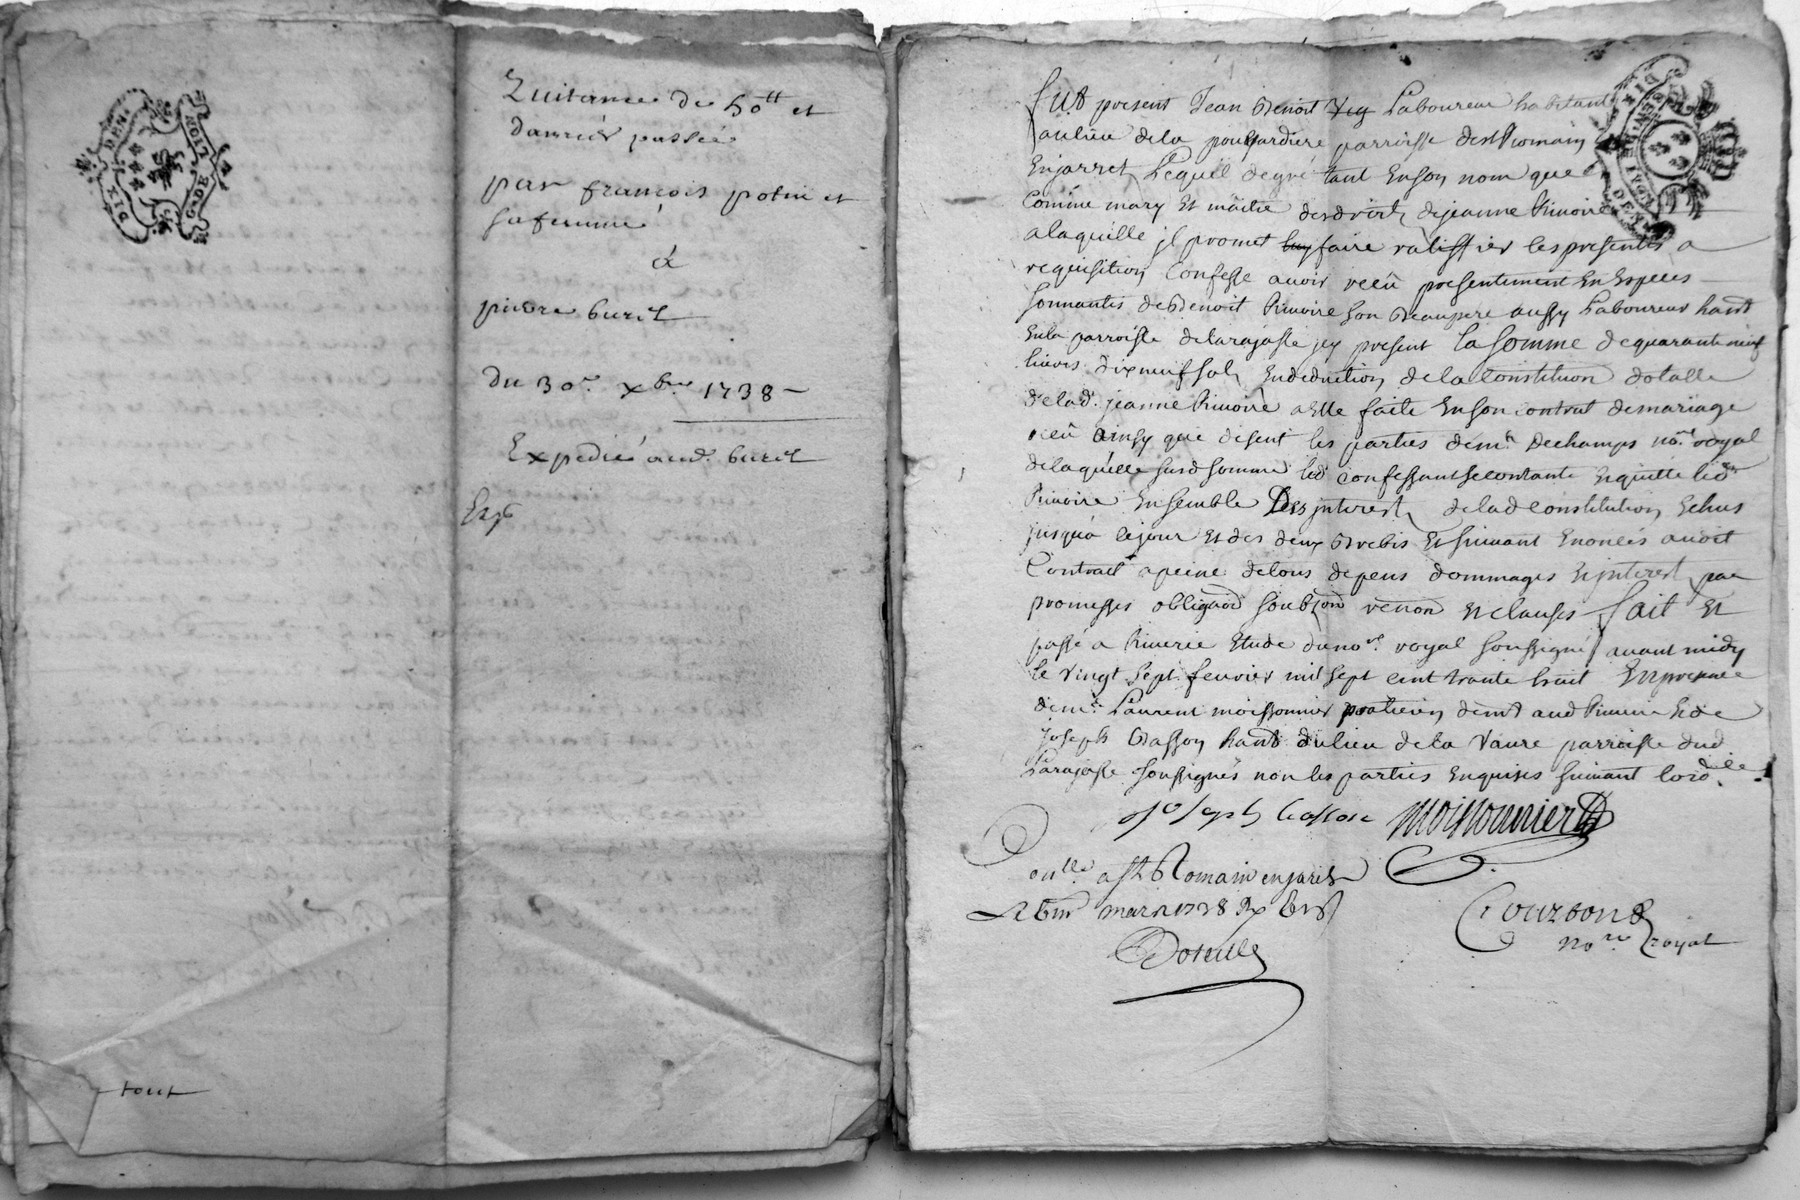 Quitance de 50 tt et
darrié passée
par francois potin et
sa femme
à
pierre buret
du 30e xbre 1738
Expedié aud. buret
Exp
tout
fut present Jean Benoit Laboureur habitant
au lieu de la parroisse de st Romain
En jarret Lequel de gré tant En son nom que
Comme mary Et maitre des droits de jeanne Rivoire
a laquelle jl promet faire ratiffier les presentes a
requisition Confesse avoir reçû presentement En Especes
sonnantes de Benoit Rivoire son Beaupere aussy Laboureur habt
En la parroisse de larajasse jcy present la somme de quarante neuf
livres dix neuf sols En deduction de la Constitution dotalle
de lad. jeanne Rivoire a Elle faite En son contrat de mariage
reçû ainsy que disent les parties de me Dechamps nore royal
de laquelle susd somme led confessant se contante Et quitte led
Rivoire Ensemble Des jnterests de lad Constitution Echus
jusqu'a ce jour Et des deux Brebis Et suivant Enoncés aud
Contract a peine de tous depens dommages Et jnterest par
promesses obligaon soubmon renon Et clauses fait Et
passé a Riverie Etude du nore royal soussigné avant midy
le vingt sept fevrier mil sept cent trante huit En presence
de me Laurent moissonnier praticien demt aud Riverie Et de
joseph Basson habt du lieu de la Vaure parroisse dud
Larajasse soussignés non les parties Enquises suivant lord.ce
joseph basson Moissonnier
onlle a St Romain en jarest
Le mars 1738
Couzon
nore royal